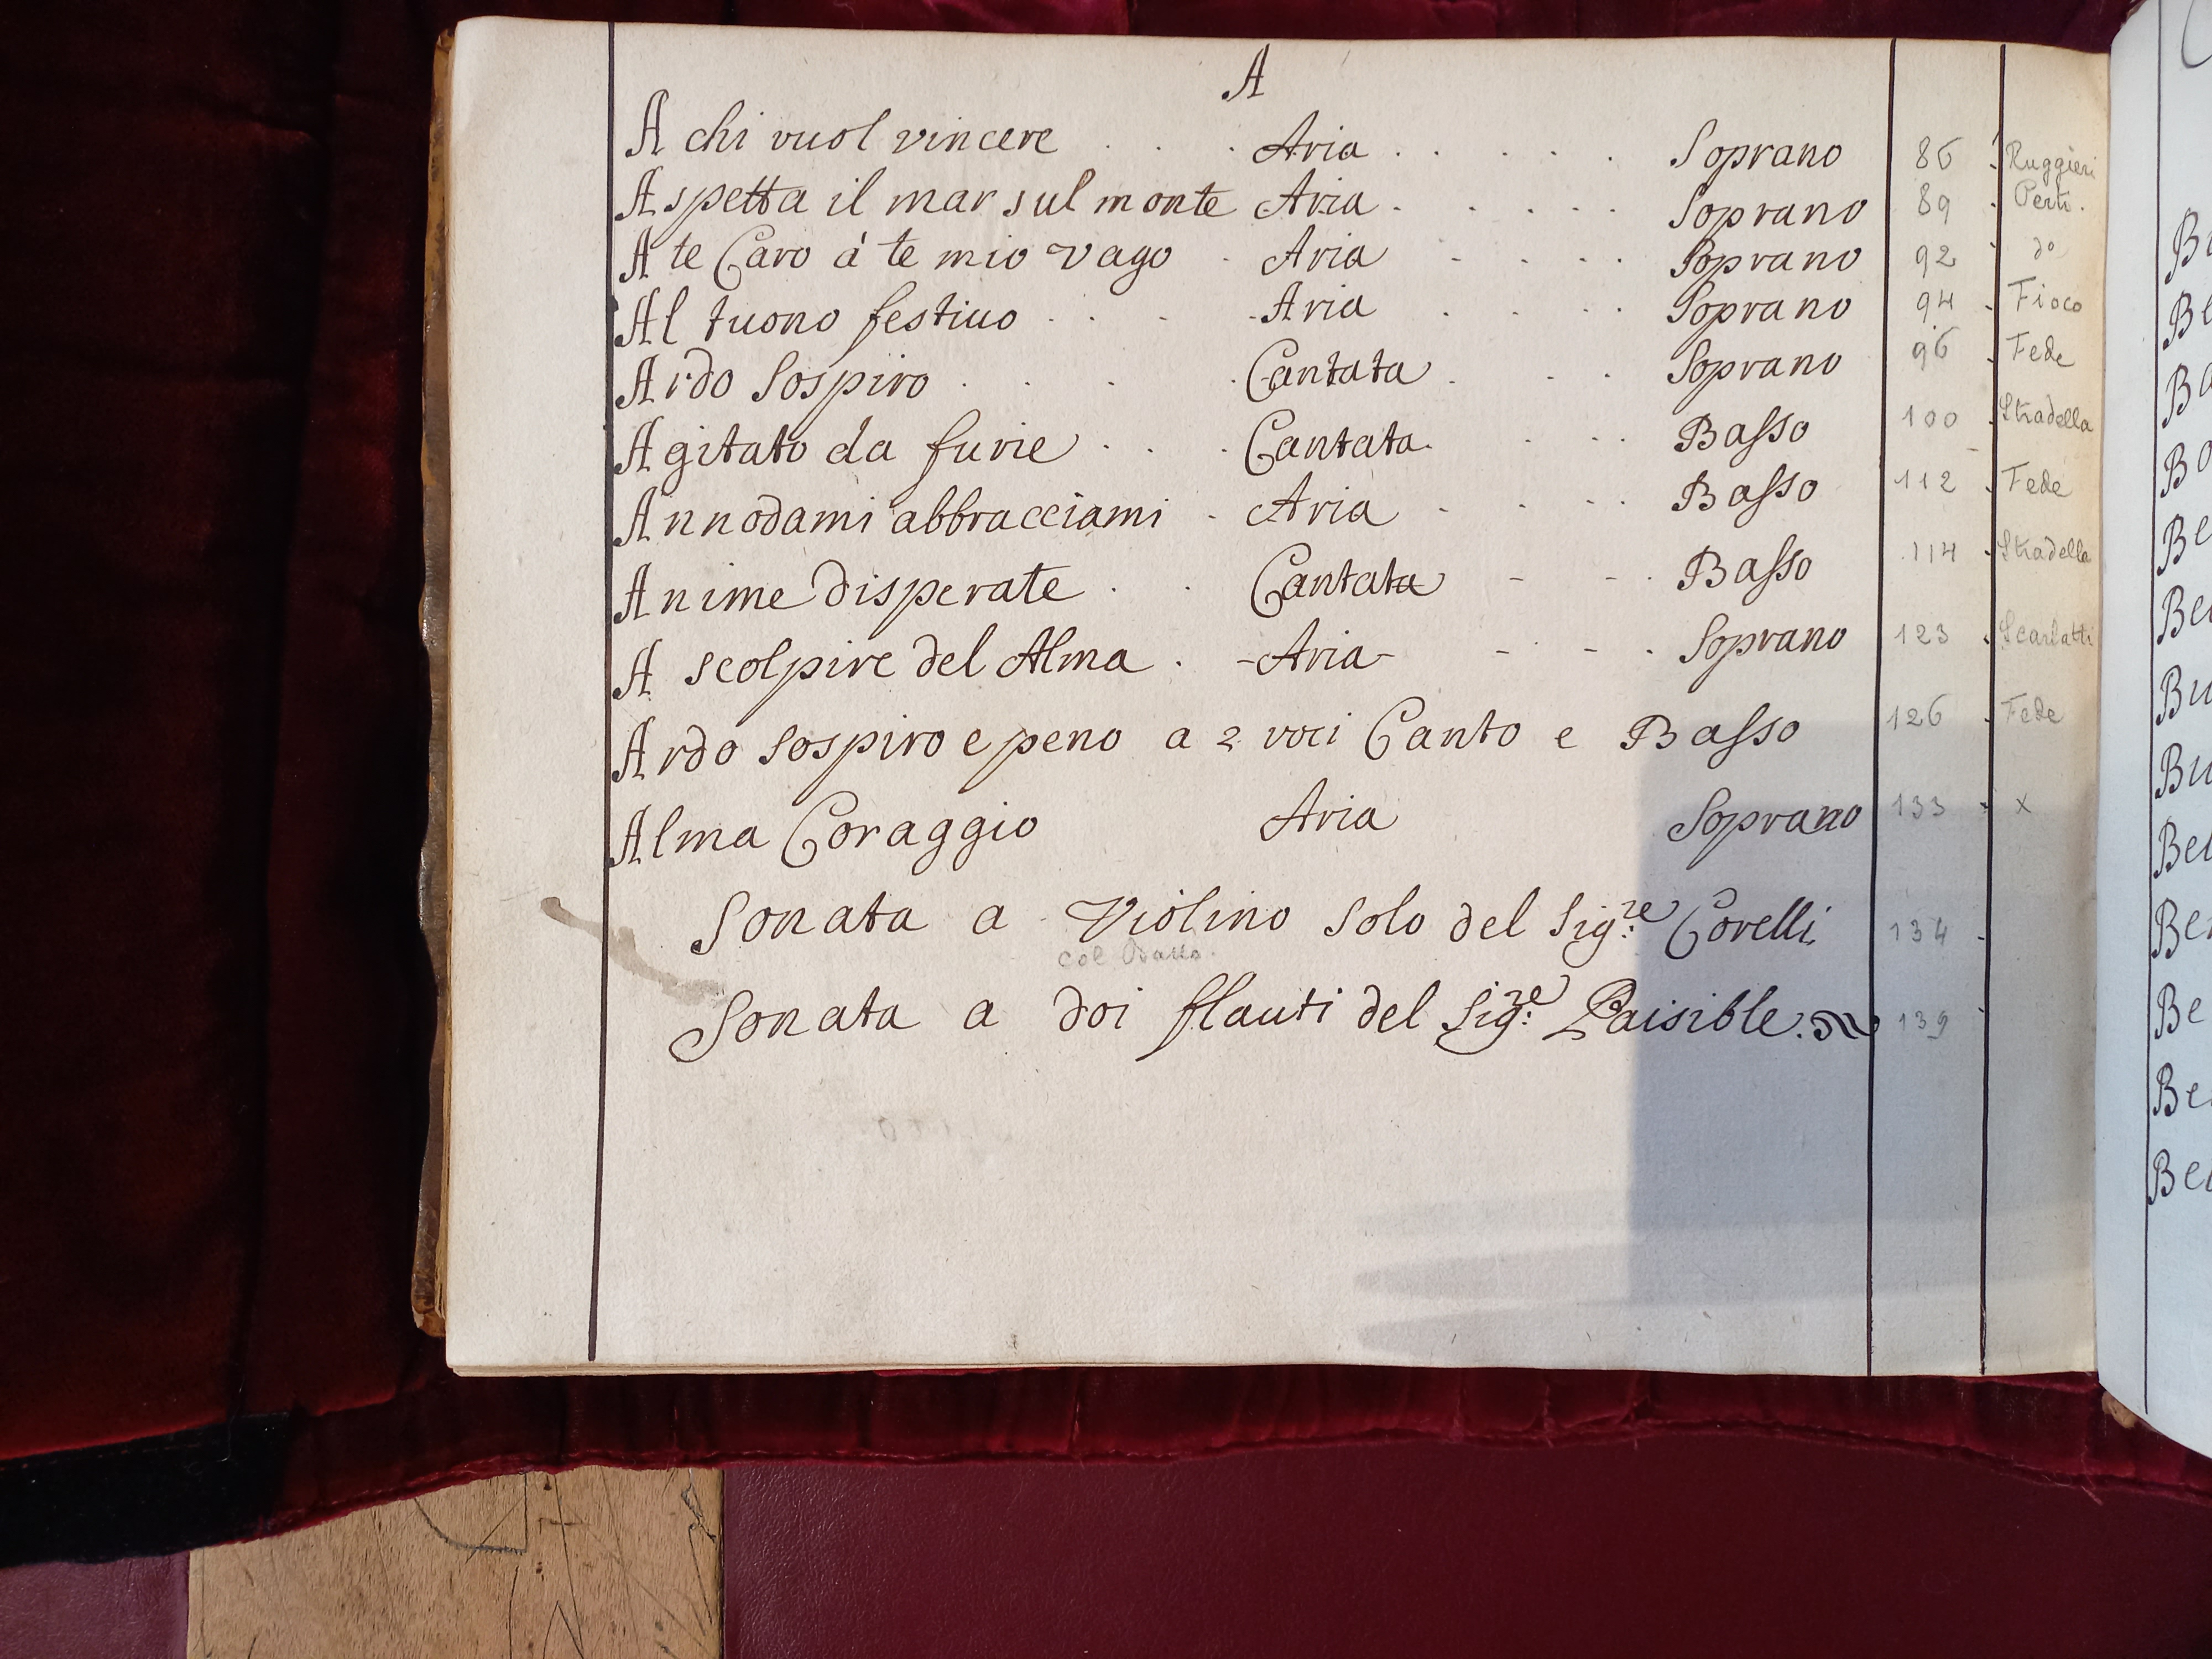 A
A chi vuol vincere . . . Aria . . . . . Soprano 86 Ruggieri
Aspetta il mar sul monte Aria . . . . . Soprano 89 Perti.
A te Caro á te mio vago . Aria . . . . Soprano 92 do
Al tuono festiuo . . . Aria . . . . Soprano 94 Fioco
Ardo Sospiro . . . Cantata . . . Soprano 96 Fede
Agitato da furie . . . Cantata. . . . Basso 100 Stradella
Annodami abbracciami . Aria . . . . Basso 112 Fede
Anime disperate . . Cantata - - . Basso 114 Stradella
A scolpire del Alma . - Aria - - - . Soprano 123 Scarlatti
Ardo Sospiro e peno a 2 voci Canto e Basso 126 Fede
Alma Coraggio Aria Soprano 133 x
Sonata a Violino solo del Sig:re Corelli 134
col Basso.
Sonata a doi flauti del Sig:re Paisible. 139